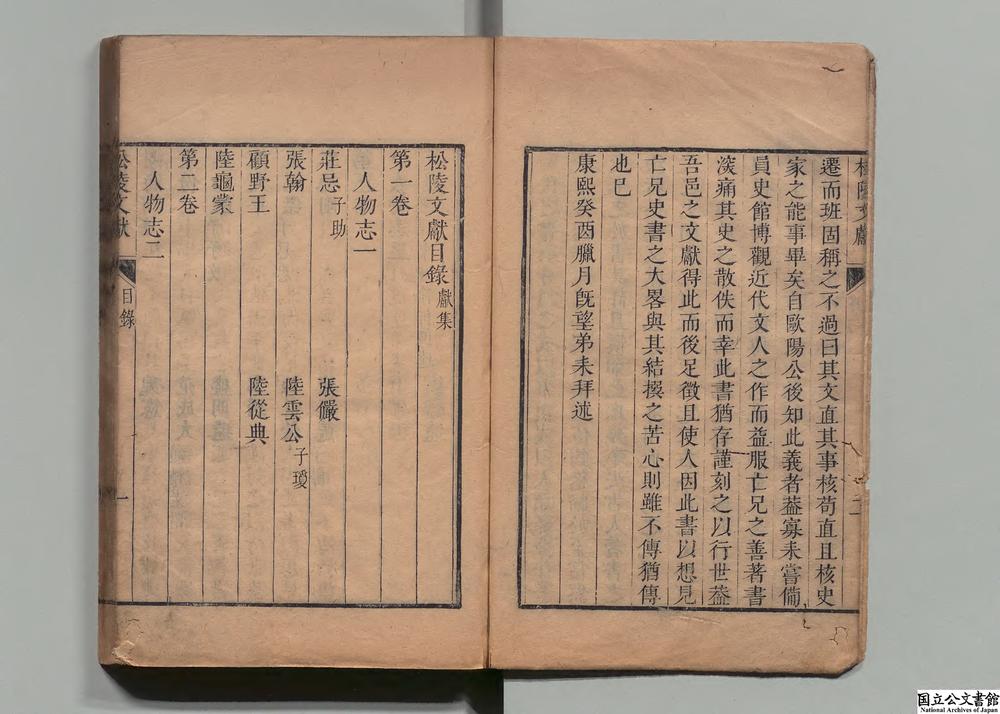 松陵文獻
二
遷而班固稱之不過曰其文直其事核苟直且核史
家之能事畢矣自歐陽公後知此義者葢寡耒嘗備
員史館博觀近代文人之作而益服亡兄之善著書
深痛其史之散佚而幸此書猶存謹刻之以行世葢
吾邑之文獻得此而後足徵且使人因此書以想見
亡兄史書之大畧與其結撰之苦心則雖不傳猶傳
也已
康熙癸酉臘月旣望弟耒拜述
松陵文獻目錄 獻集
第一卷
人物志一
莊忌 子助 張儼
張翰 陸雲公 子瓊
顧野王 陸從典
陸龜蒙
第二卷
人物志二
松陵文獻 目錄 一
国立公文書館
National Archives of Japan